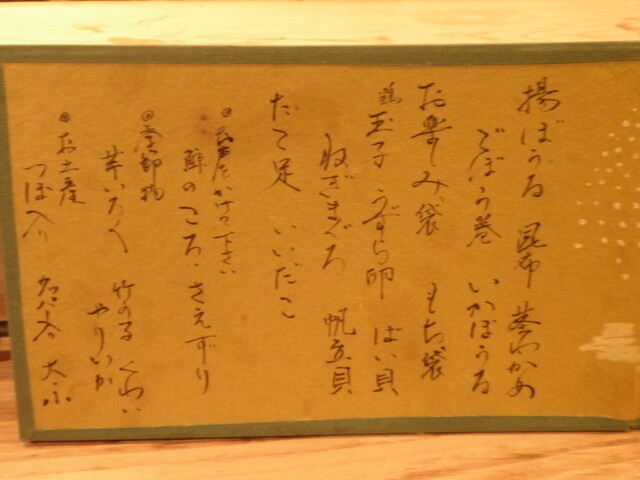 揚ぼうる 昆布 茎わかめ
ごぼう巻 いかぼうる
お楽しみ袋 もち袋
鶏玉子 うずら卵 ばい貝
ねぎまぐろ 帆立貝
たこ足 いいだこ
お声をかけて下さい
鯨のころ、さえずり
芋いろく 竹の子 くわい
やりいか
お土産
つぼ入り タッパー入り 大小